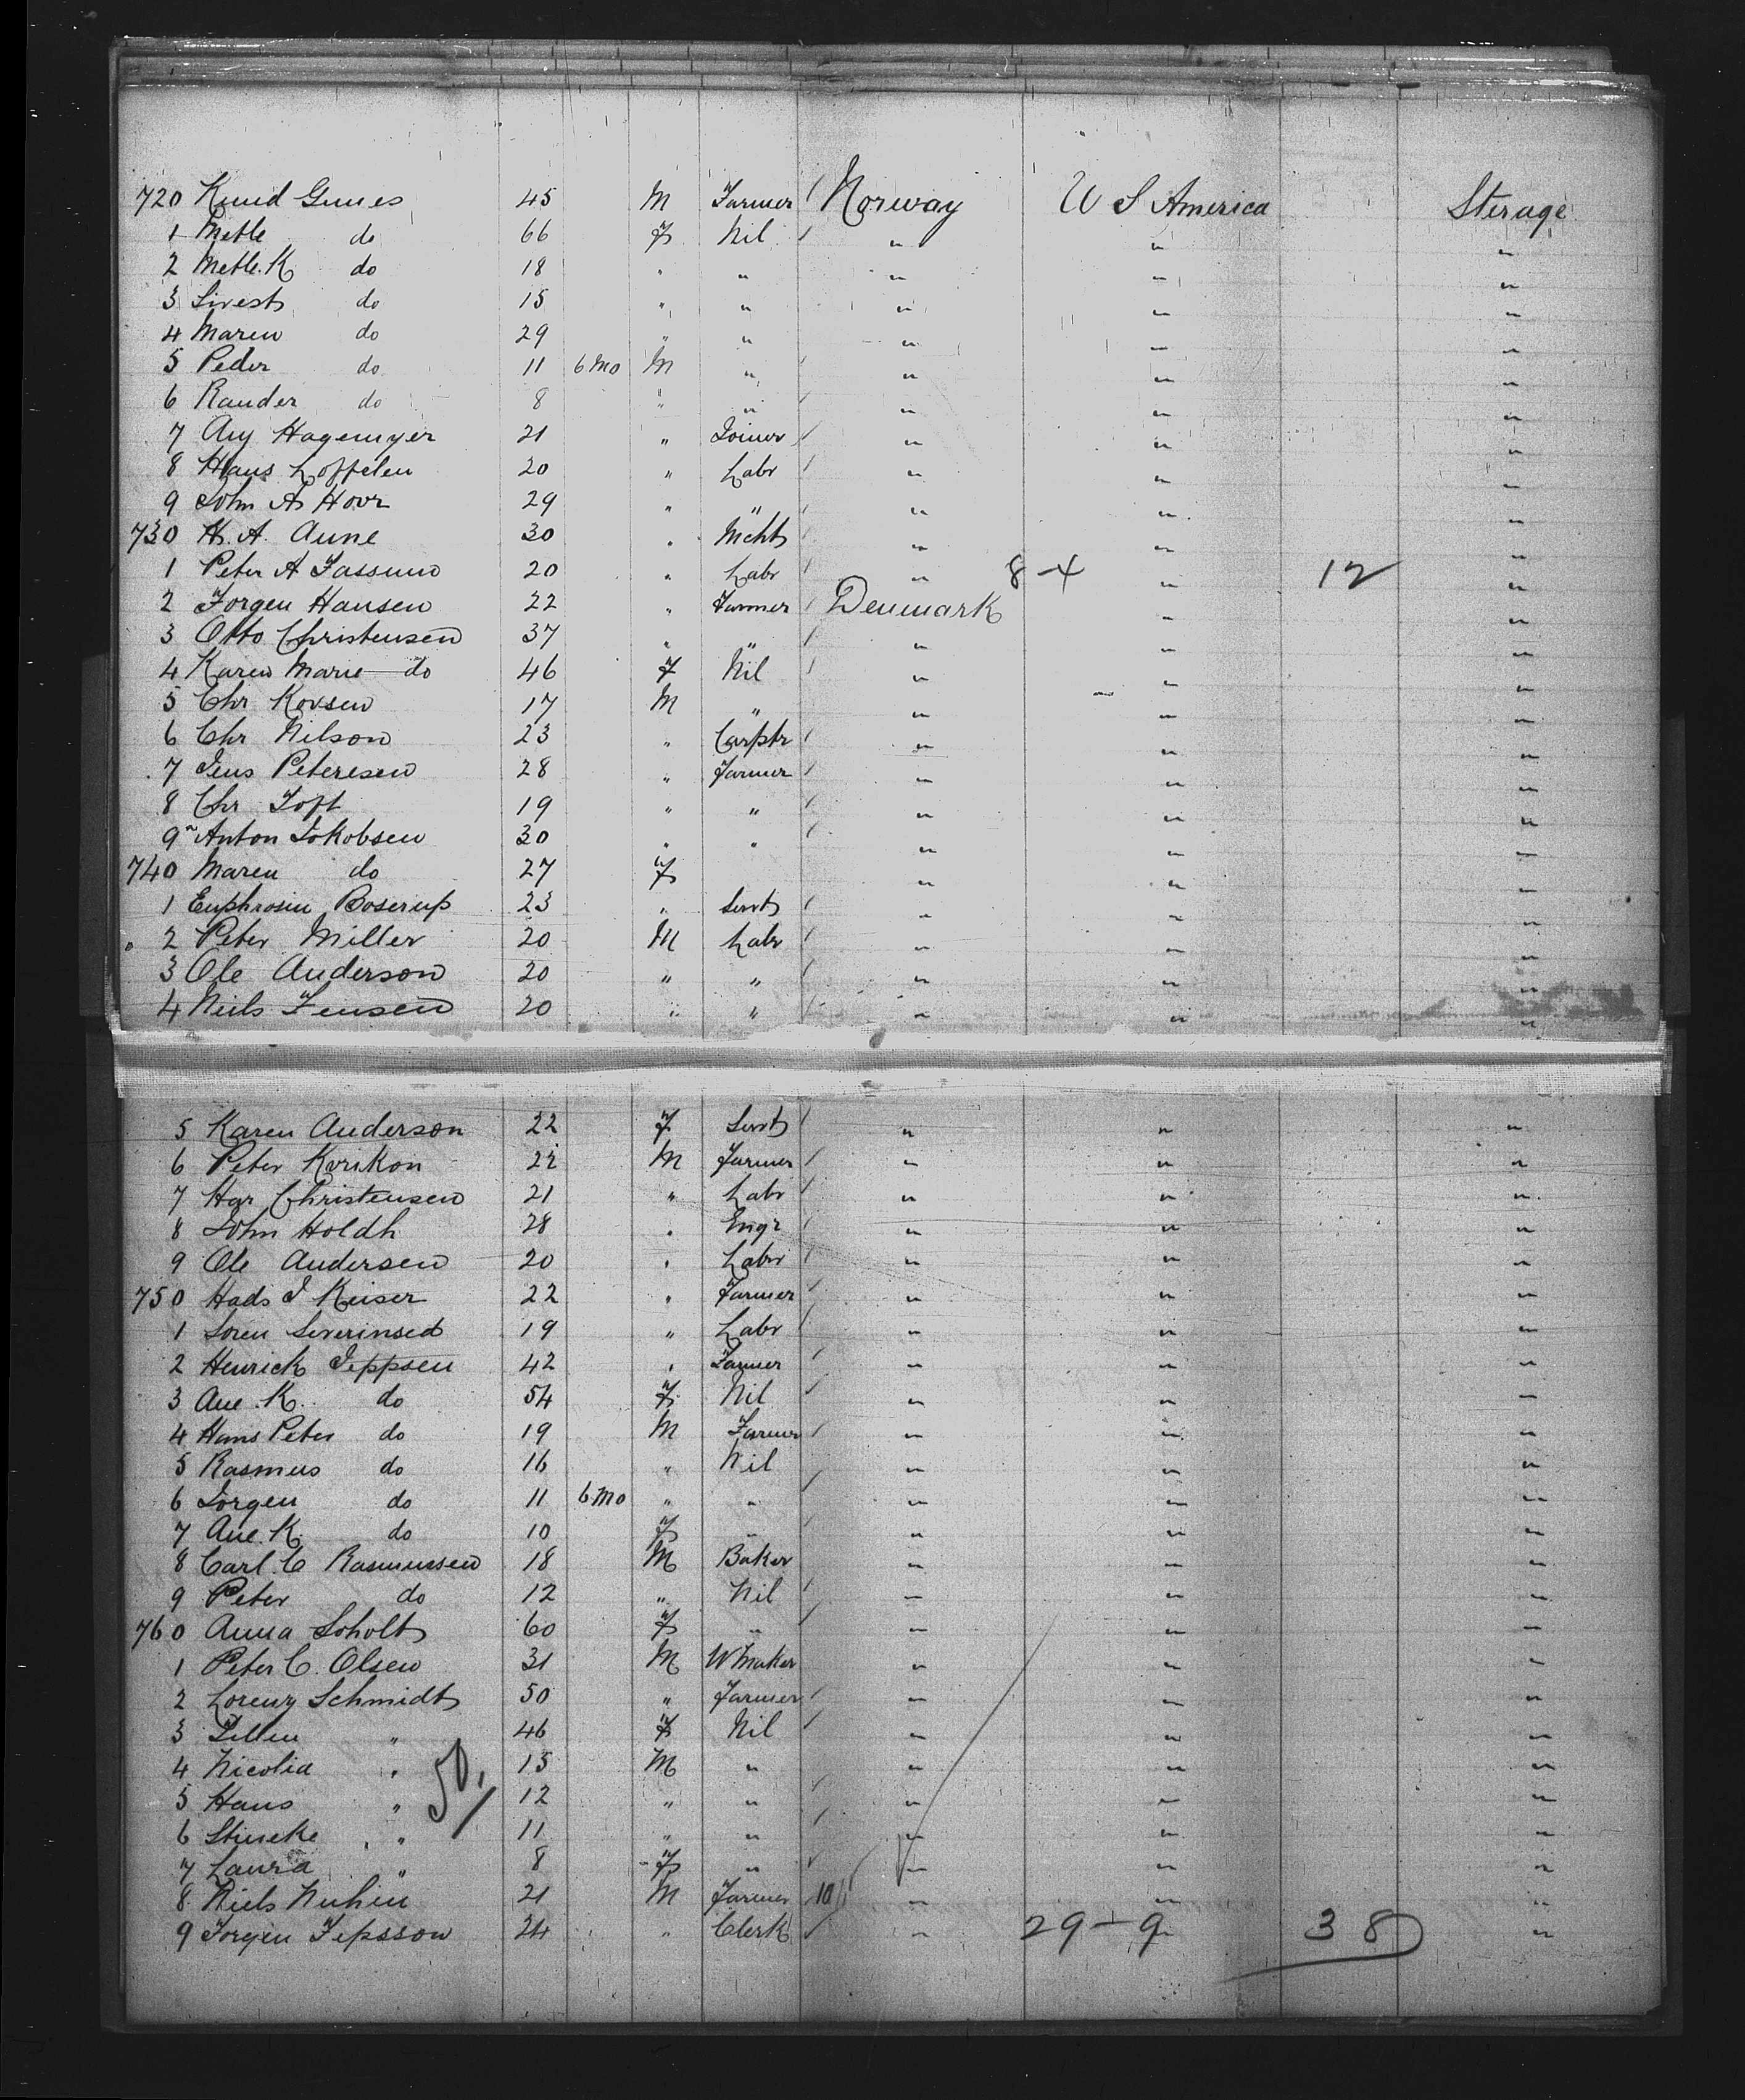 720 Knud Gunnes 45 M Farmer Norway U S America Sterage
1 Mette do 66 F Nil " " "
2 Mette. K do 18 " " " " "
3 Sivest do 15 " " " " "
4 Maren do 29 " " " " "
5 Peder do 11 6 Mo M " " " "
6 Rander do 8 " " " " "
7 Any Hagemyer 21 " Joiner " " "
8 Hans Loffelen 20 " Labr " " "
9 John A Hovr 29 " " " " "
730 H. A. Aune 30 " Mcht " " "
1 Peter A Fassund 20 " Labr " 8-4 " 12 "
2 Jorgen Hansen 22 " Farmer Denmark " "
3 Otto Christensen 37 " " " " "
4 Karen Marie do 46 F Nil " " "
5 Chr Kovsen 17 M " " " "
6 Chr Nilson 23 " Carptr " " "
7 Jens Peteresen 28 " Farmer " " "
8 Chr Toft 19 " " " " "
9 Anton Jokobsen 30 " " " " "
740 Maren do 27 F " " "
1 Euphrosin Boserup 23 " Servt " " "
2 Peter Miller 20 M Labr " " "
3 Ole Anderson 20 " " " " "
4 Niels Jensen 20 " " " " "
5 Karen Anderson 22 F Servt " " "
6 Peter Kvrikon 22 M Farmer " " "
7 Har Christensen 21 " Labr " " "
8 John Holdh 28 " Engr " " "
9 Ole Andersen 20 " Labr " " "
750 Hads J Keiser 22 " Farmer " " "
1 Soren Severinsed 19 " Labr " " "
2 Henrick Jeppsen 42 " Farmer " " "
3 Ane. K. do 54 F Nil " " "
4 Hans Peter do 19 M Farmer " " "
5 Rasmus do 16 " Nil " " "
6 Jorgen do 11 6 Mo " " " " "
7 Ane. K. do 10 F " " " "
8 Carl. C Rasmussen 18 M Baker " " "
9 Peter do 12 " Nil " " "
760 Anna Soholt 60 F " " " "
1 Peter C. Olsen 31 M W maker " " "
2 Lorenz Schmidt 50 " Farmer " " "
3 " 46 F Nil " " "
4 Nicolia " 15 M " " " "
50.
5 Hans " 12 " " " " "
6 Stincke " 11 " " " " "
7 Laura " 8 F " " " "
8 Niels Nuhin 21 M Farmer 10 " " "
9 Jorgen Jepsson 24 " Clerk " 29-9 " 38 "